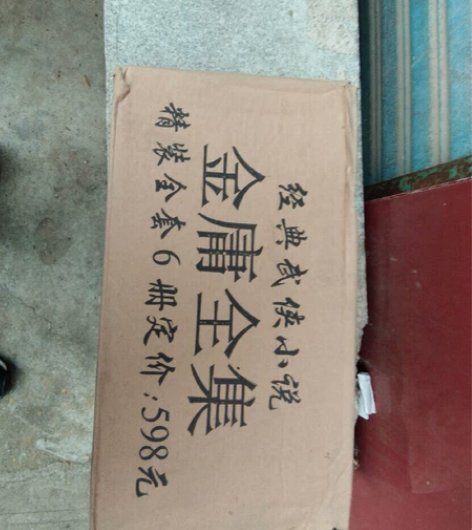 经典武侠小说
金庸全集
精装全套6册定价:598元